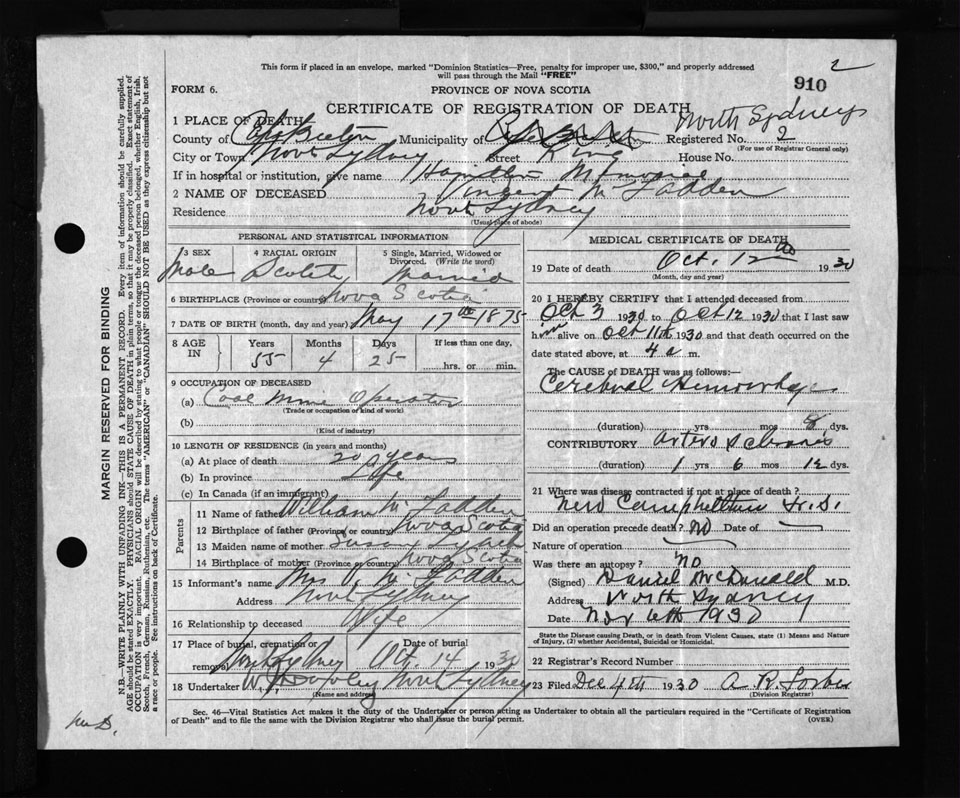 This form if placed in an envelope, marked "Dominion Statistics—Free, penalty for improper use, $300," and properly addressed
will pass through the Mail "FREE"
2
910
FORM 6.
PROVINCE OF NOVA SCOTIA
CERTIFICATE OF REGISTRATION OF DEATH
North Sydney
1 PLACE OF DEATH
County of Cape Breton Municipality of Registered No. 2
(For use of Registrar General only)
City or Town North Sydney Street King House No.
If in hospital or institution, give name Hamilton Memorial
2 NAME OF DECEASED Vincent McFadden
Residence North Sydney
(Usual place of abode)
PERSONAL AND STATISTICAL INFORMATION
3 SEX 4 RACIAL ORIGIN 5 Single, Married, Widowed or
Divorced. (Write the word)
Male Scotch Married
6 BIRTHPLACE (Province or country) Nova Scotia
7 DATE OF BIRTH (month, day and year) May 17th 1875
8 AGE IN Years Months Days If less than one day,
55 4 25 hrs. or min.
9 OCCUPATION OF DECEASED
(a) Coal Mine Operator
(Trade or occupation or kind of work)
(b)
(Kind of industry)
10 LENGTH OF RESIDENCE (in years and months)
(a) At place of death 20 years
(b) In province Life
(c) In Canada (if an immigrant)
Parents
11 Name of father William McFadden
12 Birthplace of father (Province or country) Nova Scotia
13 Maiden name of mother Susan Lynch
14 Birthplace of mother (Province or country) Nova Scotia
15 Informant's name Mrs V. McFadden
Address North Sydney
16 Relationship to deceased Wife
17 Place of burial, cremation or Date of burial
removal North Sydney Oct. 14 1930
18 Undertaker W. J. Dooley North Sydney
(Name and address)
MEDICAL CERTIFICATE OF DEATH
19 Date of death Oct. 12th 1930
(Month, day and year)
20 I HEREBY CERTIFY that I attended deceased from
Oct 3 1930 to Oct 12 1930 that I last saw
him alive on Oct 11th 1930 and that death occurred on the
date stated above, at 4 a m.
The CAUSE of DEATH was as follows:—
Cerebral Hemorrhage
(duration) yrs mos 8 dys.
CONTRIBUTORY Arterio Sclerosis
(duration) 1 yrs 6 mos 12 dys.
21 Where was disease contracted if not at place of death?
New Campbellton N.S.
Did an operation precede death? No Date of
Nature of operation
Was there an autopsy? No
(Signed) Daniel McDonald M.D.
Address North Sydney
Date Nov 6th 1930
State the Disease causing Death, or in death from Violent Causes, state (1) Means and
Nature of Injury, (2) whether Accidental, Suicidal or Homicidal.
22 Registrar's Record Number
23 Filed Dec 4th 1930 A. R. Forbes
(Division Registrar)
Sec. 46—Vital Statistics Act makes it the duty of the Undertaker or person acting as Undertaker to obtain all the particulars required in the "Certificate of Registration
of Death" and to file the same with the Division Registrar who shall issue the burial permit.
(OVER)
MARGIN RESERVED FOR BINDING
N.B.—WRITE PLAINLY WITH UNFADING INK—THIS IS A PERMANENT RECORD. Every item of information should be carefully supplied.
AGE should be stated EXACTLY. PHYSICIANS should STATE CAUSE OF DEATH in plain terms, so that it may be properly classified. Exact statement of
OCCUPATION is very important. RACIAL ORIGIN will be described by stating to what people or tongue the deceased person belonged, whether English, Irish,
Scotch, French, German, Russian, Ruthenian, etc. The terms "AMERICAN" or "CANADIAN" SHOULD NOT BE USED as they express citizenship but not
a race or people. See instructions on back of Certificate.